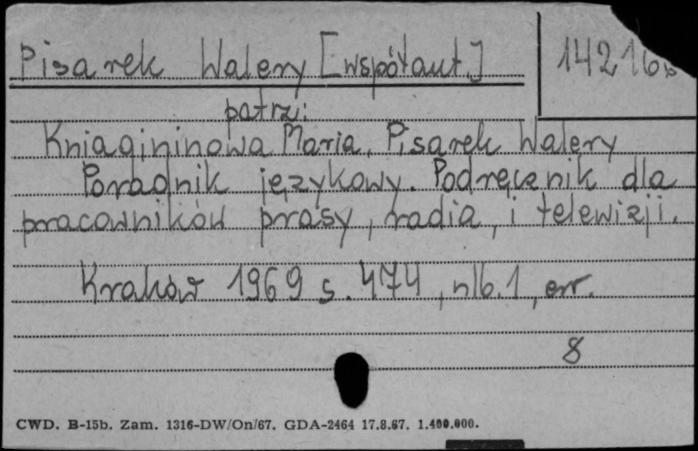 Pisarek Walery [współaut.]
14216
patrz:
Kniagininowa Maria, Pisarek Walery
Poradnik językowy. Podręcznik dla
pracowników prasy, radia, i telewizji.
Kraków 1969 s. 474, nlb. 1, err.
8
CWD. B-15b. Zam. 1316-DW/On/67. GDA-2464 17.8.67. 1.400.000.